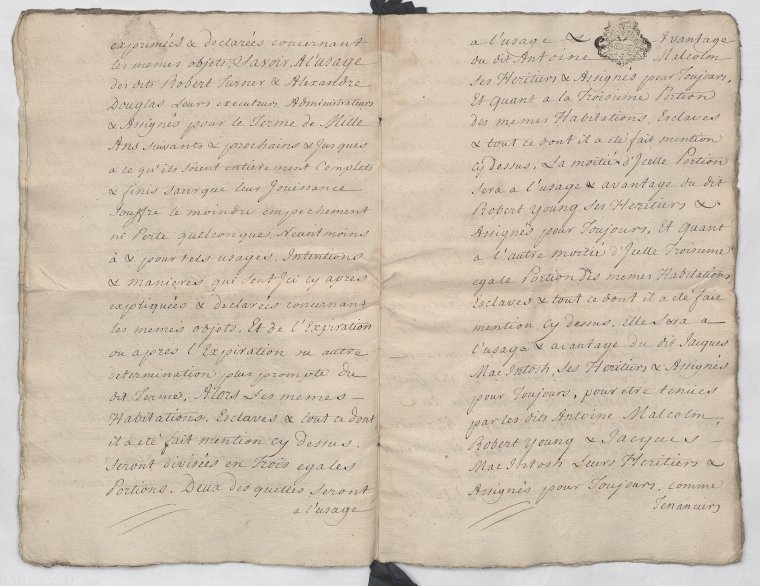 exprimées & declarées concernant
les memes objets, Sçavoir, A l'usage
des dits Robert Turner & Alexandre
Douglas Leurs executeurs, Administrateurs
& Assignés pour le Terme de Mille
Ans suivants & prochains & Jusques
a ce qu'ils soient entièrement Complets
& finis sans que leur Jouissance
souffre le moindre empechement
ni Perte quelconque. Neantmoins
à & pour tels usages, Intentions
& manieres, qui sont Ici cy apres
expliquées & declarés concernant
les memes objets. Et de l'Expiration
ou après l'Expiration ou autre
determination plus prompte du
dit Terme, Alors Les memes
Habitations, Esclaves & tout ce dont
il a eté fait mention cy Dessus.
Seront divisées en Trois egales
Portions. Deux desquelles seront
a l'usage
a l'usage & Avantage
du dit Antoine Malcolm
Ses Heritiers & Assignés pour Toujours.
Et Quant a la Troisieme Portion
des memes Habitations, Esclaves
& tout ce dont il a eté fait mention
Cy dessus. La moitié d'Jcelle Portion
sera a l'usage & avantage du dit
Robert Young, Ses Heritiers &
Assignés pour Toujours. Et quant
a l'autre moitié d'Jcelle Troisieme
egale Portion des memes Habitations
Esclaves & tout ce dont il a eté fait
mention Cy dessus. Elle sera a
l'usage & avantage du dit Jacques
Mac Intosh, Ses Heritiers & Assignés
pour Toujours, pour etre tenües
par les dits Antoine Malcolm,
Robert Young & Jacques
Mac Intosh Leurs Heritiers &
Assignés pour Toujours, comme
Tenanciers